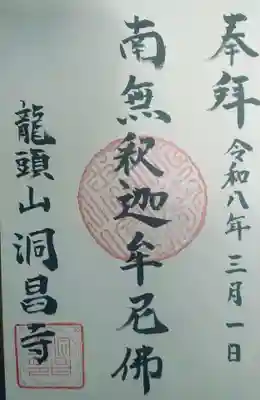 奉拝 令和八年 三月一日
南無釈迦牟尼佛
龍頭山 洞昌寺